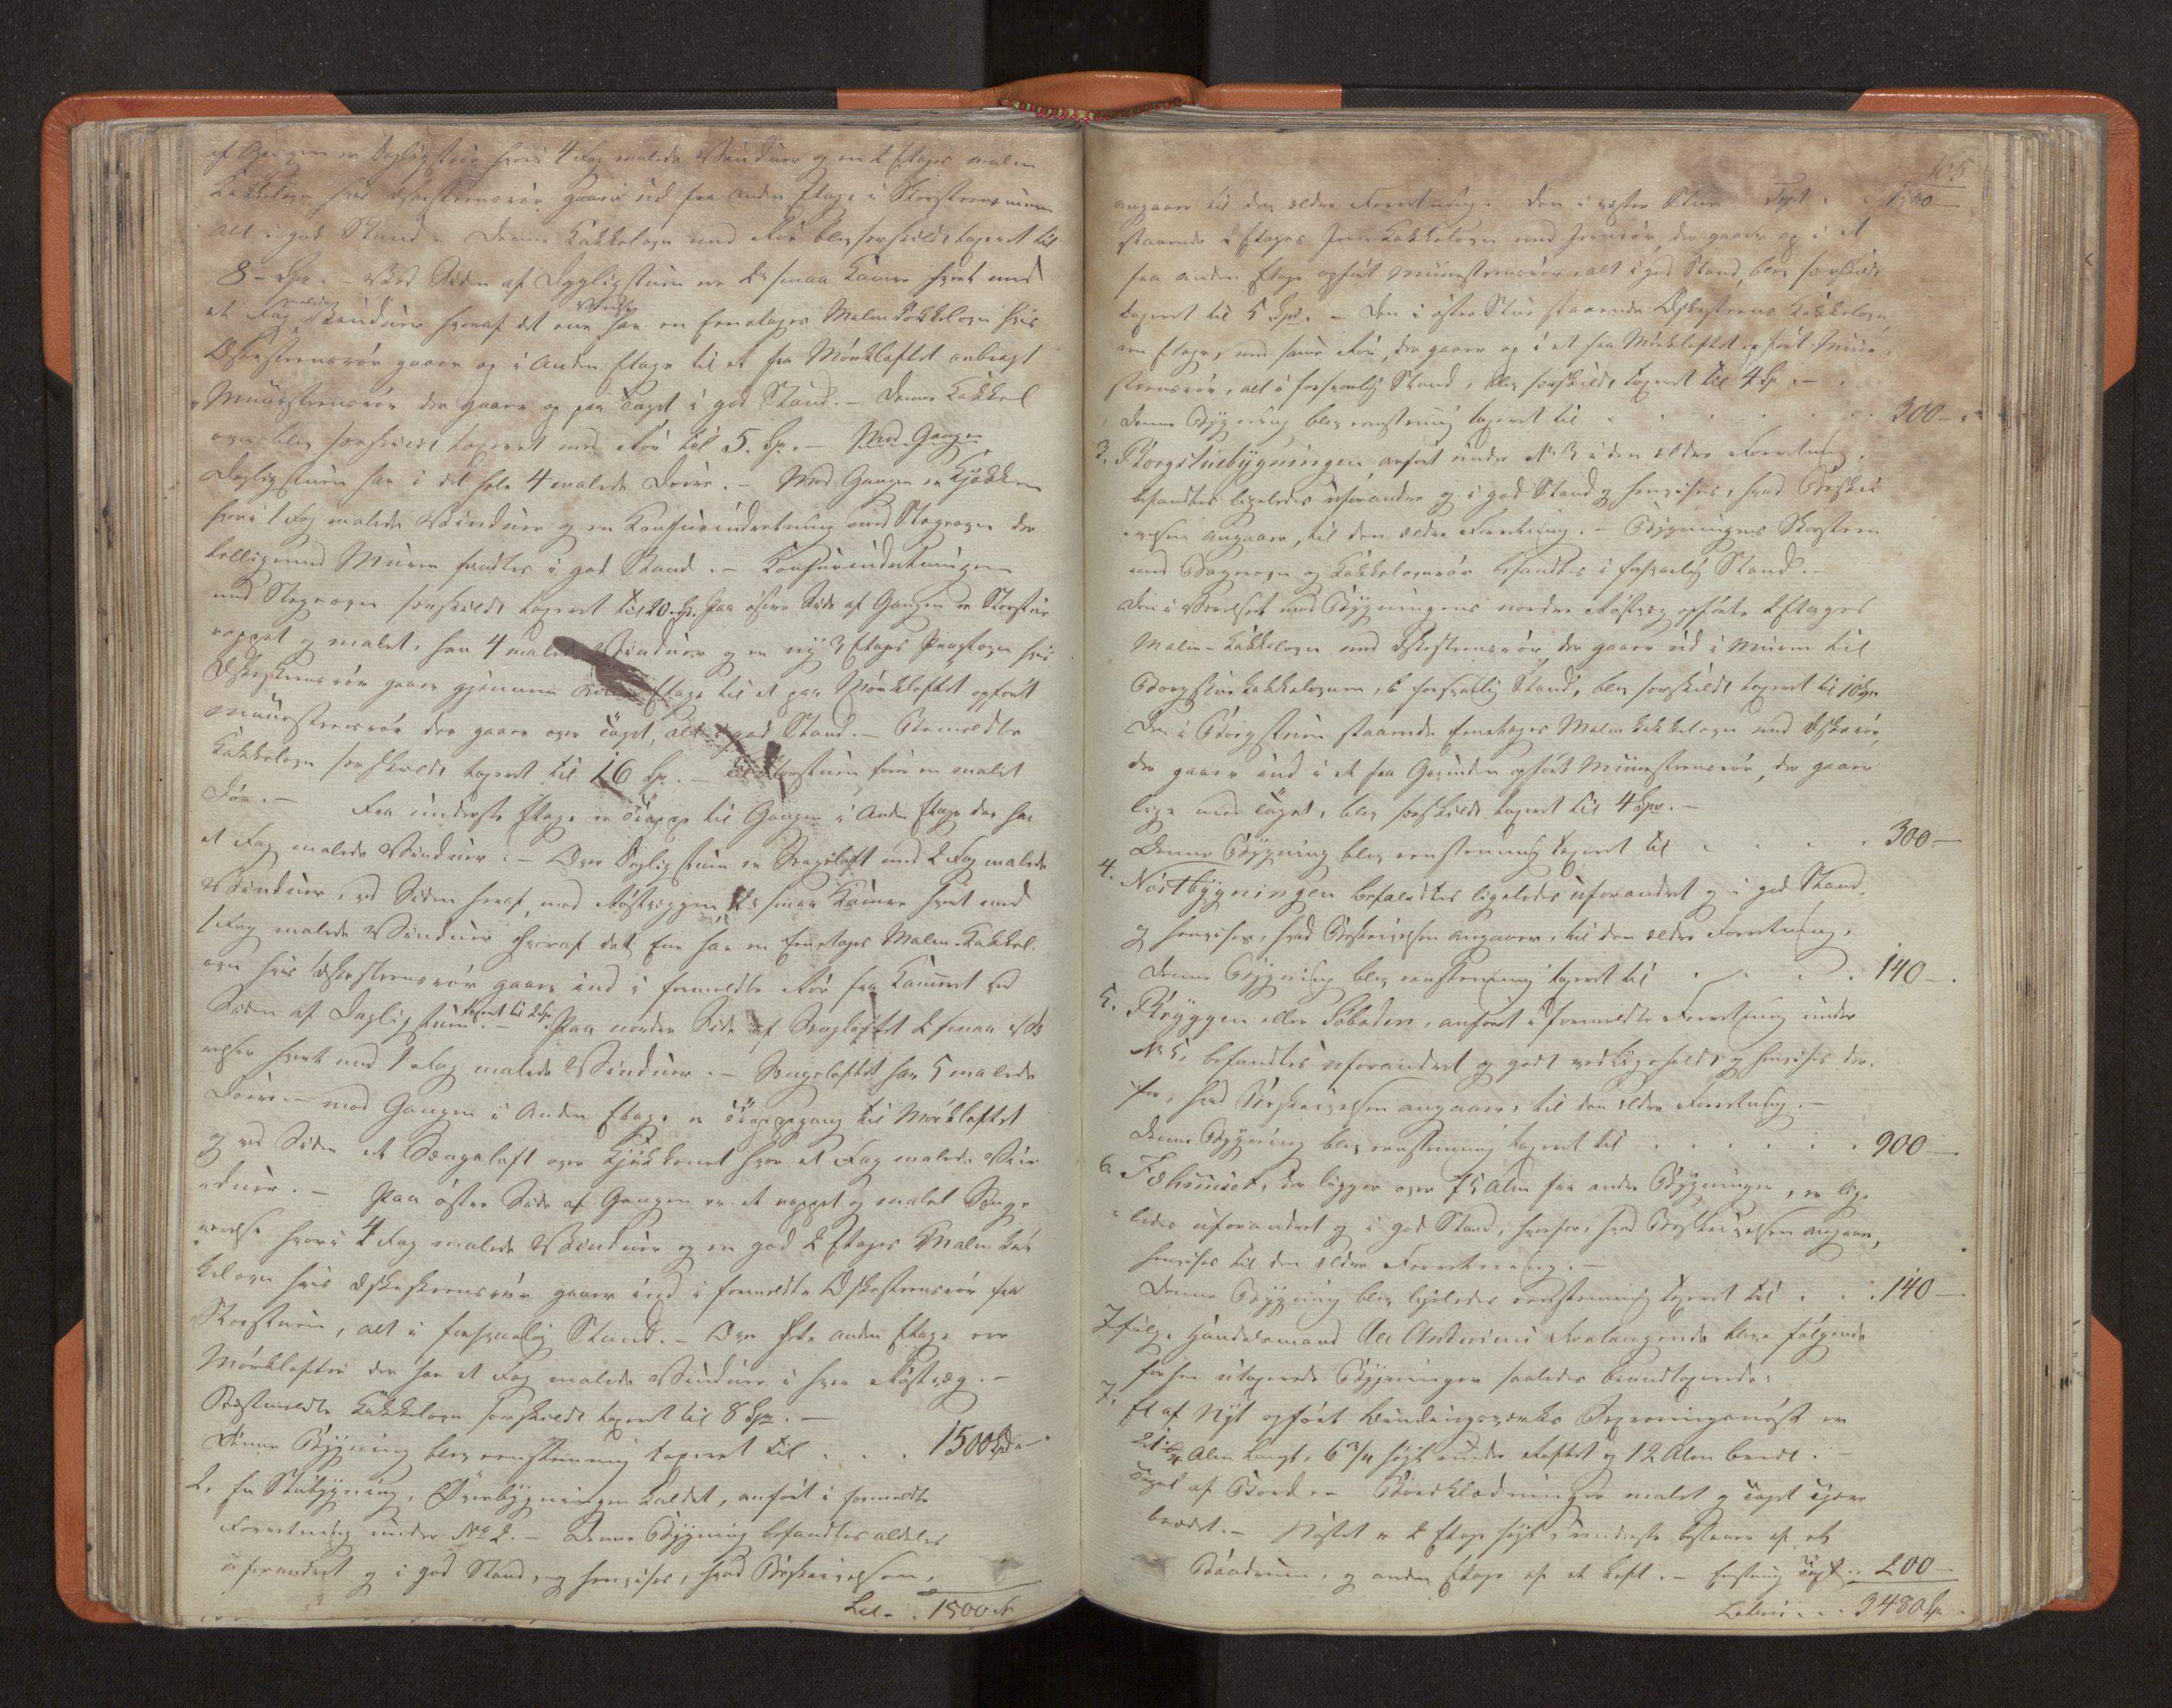 af Gangen er Dagligstue hvori 4 Fag malede Vinduer og en 2 Etages malm
Kakkelovn hvis Askesteensrør gaaer ud fra anden Etage i Skorsteensmuren
alt i god Stand. Denne Kakkelovn med Rør blev særskildt taxeret til
8 – Spd. – Ved Siden af Dagligstuen ere 2de smaa Kamre hvert med
et Fag malede Vinduer hvoraf det ene har en Eenetages Malm Kakkelovn hvis
Askesteensrør gaaer op i anden Etage til et fra Mørkloftet anbragt
Muursteensrør der gaaer op paa Taget i god Stand. – Denne Kakkel
ovn blev særskildt taxeret med Rør til 5. Sp. – Mod Gangen
Dagligstuen har i det hele 4 malede Døre. – Mod Gangen er Kjøkken
hvori 1 Fag malede Vinduer og en Komfurindretning med Stegeovn der
tilligemed Muren fandtes i god Stand. – Komfurindretningen
med Stegeovn særskildt taxeret til 20 Sp. Paa østre Side af Gangen er Storstue
rappet og malet, har 4 malede Vinduer og en ny 3 Etages Pragtovn hvis
Askesteensrør gaaer gjennem anden Etage til et paa Mørkloftet opført
Muursteensrør der gaaer over Taget, alt i god Stand. – Bemeldte
Kakkelovn særskildt taxeret til 16 Sp. – Til Storstuen fører en malet
Dør. – Fra underste Etage er Trappe til Gangen i Anden Etage der har
et Fag malede Vinduer. – Over Dagligstuen er Sengeloft med 2 Fag malede
Vinduer, ved Siden heraf, mod Røstveggen 2de smaa Kamre hvert med
1 Fag malede Vinduer hvoraf det Ene har en Eenetages Malm Kakkel-
ovn hvis Askesteensrør gaaer ind i formeldte Rør fra Kammeret ved
Siden af Dagligstuen. – taxeret til 2 Sp. Paa nordre Side af Sengeloftet 2 smaa Væ
relser hvert med 1 Fag malede Vinduer. – Sengeloftet har 5 malede
Døre. – mod Gangen i Anden Etage er Trappegang til Mørkloftet
og ved Siden et Sengeloft over Kjøkkenet hvor et Fag malede Vin
duer. – Paa østre Side af Gangen er et rappet og malet Senge
værelse hvori 4 Fag malede Vinduer og en god 2 Etages Malm Kak
kelovn hvis Askesteensrør gaaer ind i formeldte Askesteensrør fra
Storstuen, alt i forsvarlig Stand. – Over hele anden Etage ere
Mørklofter der har et Fag malede Vinduer i hver Røstvæg. –
Sidstmeldte Kakkelovn særskildt taxeret til 8 Sp. –
Denne Bygning blev eenstemmig taxeret til . . . 1500 Spd –
2. En Stubygning, kaldet, anført i formeldte
Forretning under No 2. – Denne Bygning befandtes aldeles
uforandret og i god Stand, og henvises, hvad Beskrivelsen,
Lat. . 1500 Sp
105
angaaer til den ældre Forretning. Den i vestre Stue Tpt . . 1500 –
staaende 2 Etages Jern Kakkelovn med Jernrør, der gaaer op i et
fra anden Etage opført Muursteensrør, alt i god Stand, blev særskildt
taxeret til 5 Spd. – Den i østre Stue staaende Askesteens Kakkelovn,
een Etage, med samt Rør, der gaaer op i et fra Mørkloftet opført Muur,
steensrør, alt i forsvarlig Stand, blev særskildt taxeret til 4 Sp. –
Denne Bygning blev eenstemmig taxeret til . . . . . . 300 –
3. Borgstuebygningen, anført under No 3 i den ældre Forretning,
befandtes ligeledes uforandret og i god Stand og henvises, hvad Beskri
velsen angaaer, til den ældre Forretning. – Bygningens Skorsteen
med Bagerovn og Kakkelovnsrør befandtes i forsvarlig Stand. –
Den i Værelset mod Bygningens nordre Røstvæg opførte 2 Etages
Malm-Kakkelovn med Askesteensrør, der gaaer ud i Muren til
Borgstue Kakkelovnen, i forsvarlig Stand, blev særskildt taxeret til 10 Sp.
Den i Borgstuen staaende Eenetages Malm Kakkelovn med Askerør,
der gaaer ind i et fra Grunden opført Muursteensrør, der gaaer
lige mod Taget, blev særskildt taxeret til 4 Spd. –
Denne Bygning blev eenstemmig taxeret til . . . . 300 –
4. Nøstbygningen befandtes ligeledes uforandret og i god Stand,
og henvises, hvad Beskrivelsen angaaer, til den ældre Forretning,
Denne Bygning blev eenstemmig taxeret til . . . . 140 – .
5. Bryggen eller Søboden, anført i formeldte Forretning under
No 5, befandtes uforandret og godt vedligeholdt og henvises der-
for, hvad Beskrivelsen angaaer, til den ældre Forretning. –
Denne Bygning blev eenstemmig taxeret til . . . . . . 900 –
6. Fæhuuset, der ligger over 75 Alen fra andre Bygninger, er lige
ledes uforandret og i god Stand, hvorfor, hvad Beskrivelsen angaaer,
henvises til den ældre Forretning. –
Denne Bygning blev ligeledes eenstemmig taxeret til . . . 140 –
Ifølge Handelsmand Forlangende bleve følgende
før utaxerede Bygninger saaledes brandtaxerede:
7. Et af Nyt opført Bindingsværks Nøst er
21 Alen langt, 6 3/4 høgt under Loftet og 12 Alen bredt. –
Taget af Bord. – Bordklædningen malet og Taget tjære
brædet. – Nøstet er 2 Etage høgt, underste bestaaer af et
Baadrum, og anden Etage af et Loft. – Eenstemmig taxt . . 200 –
Lateris . . . 3480 Sp.